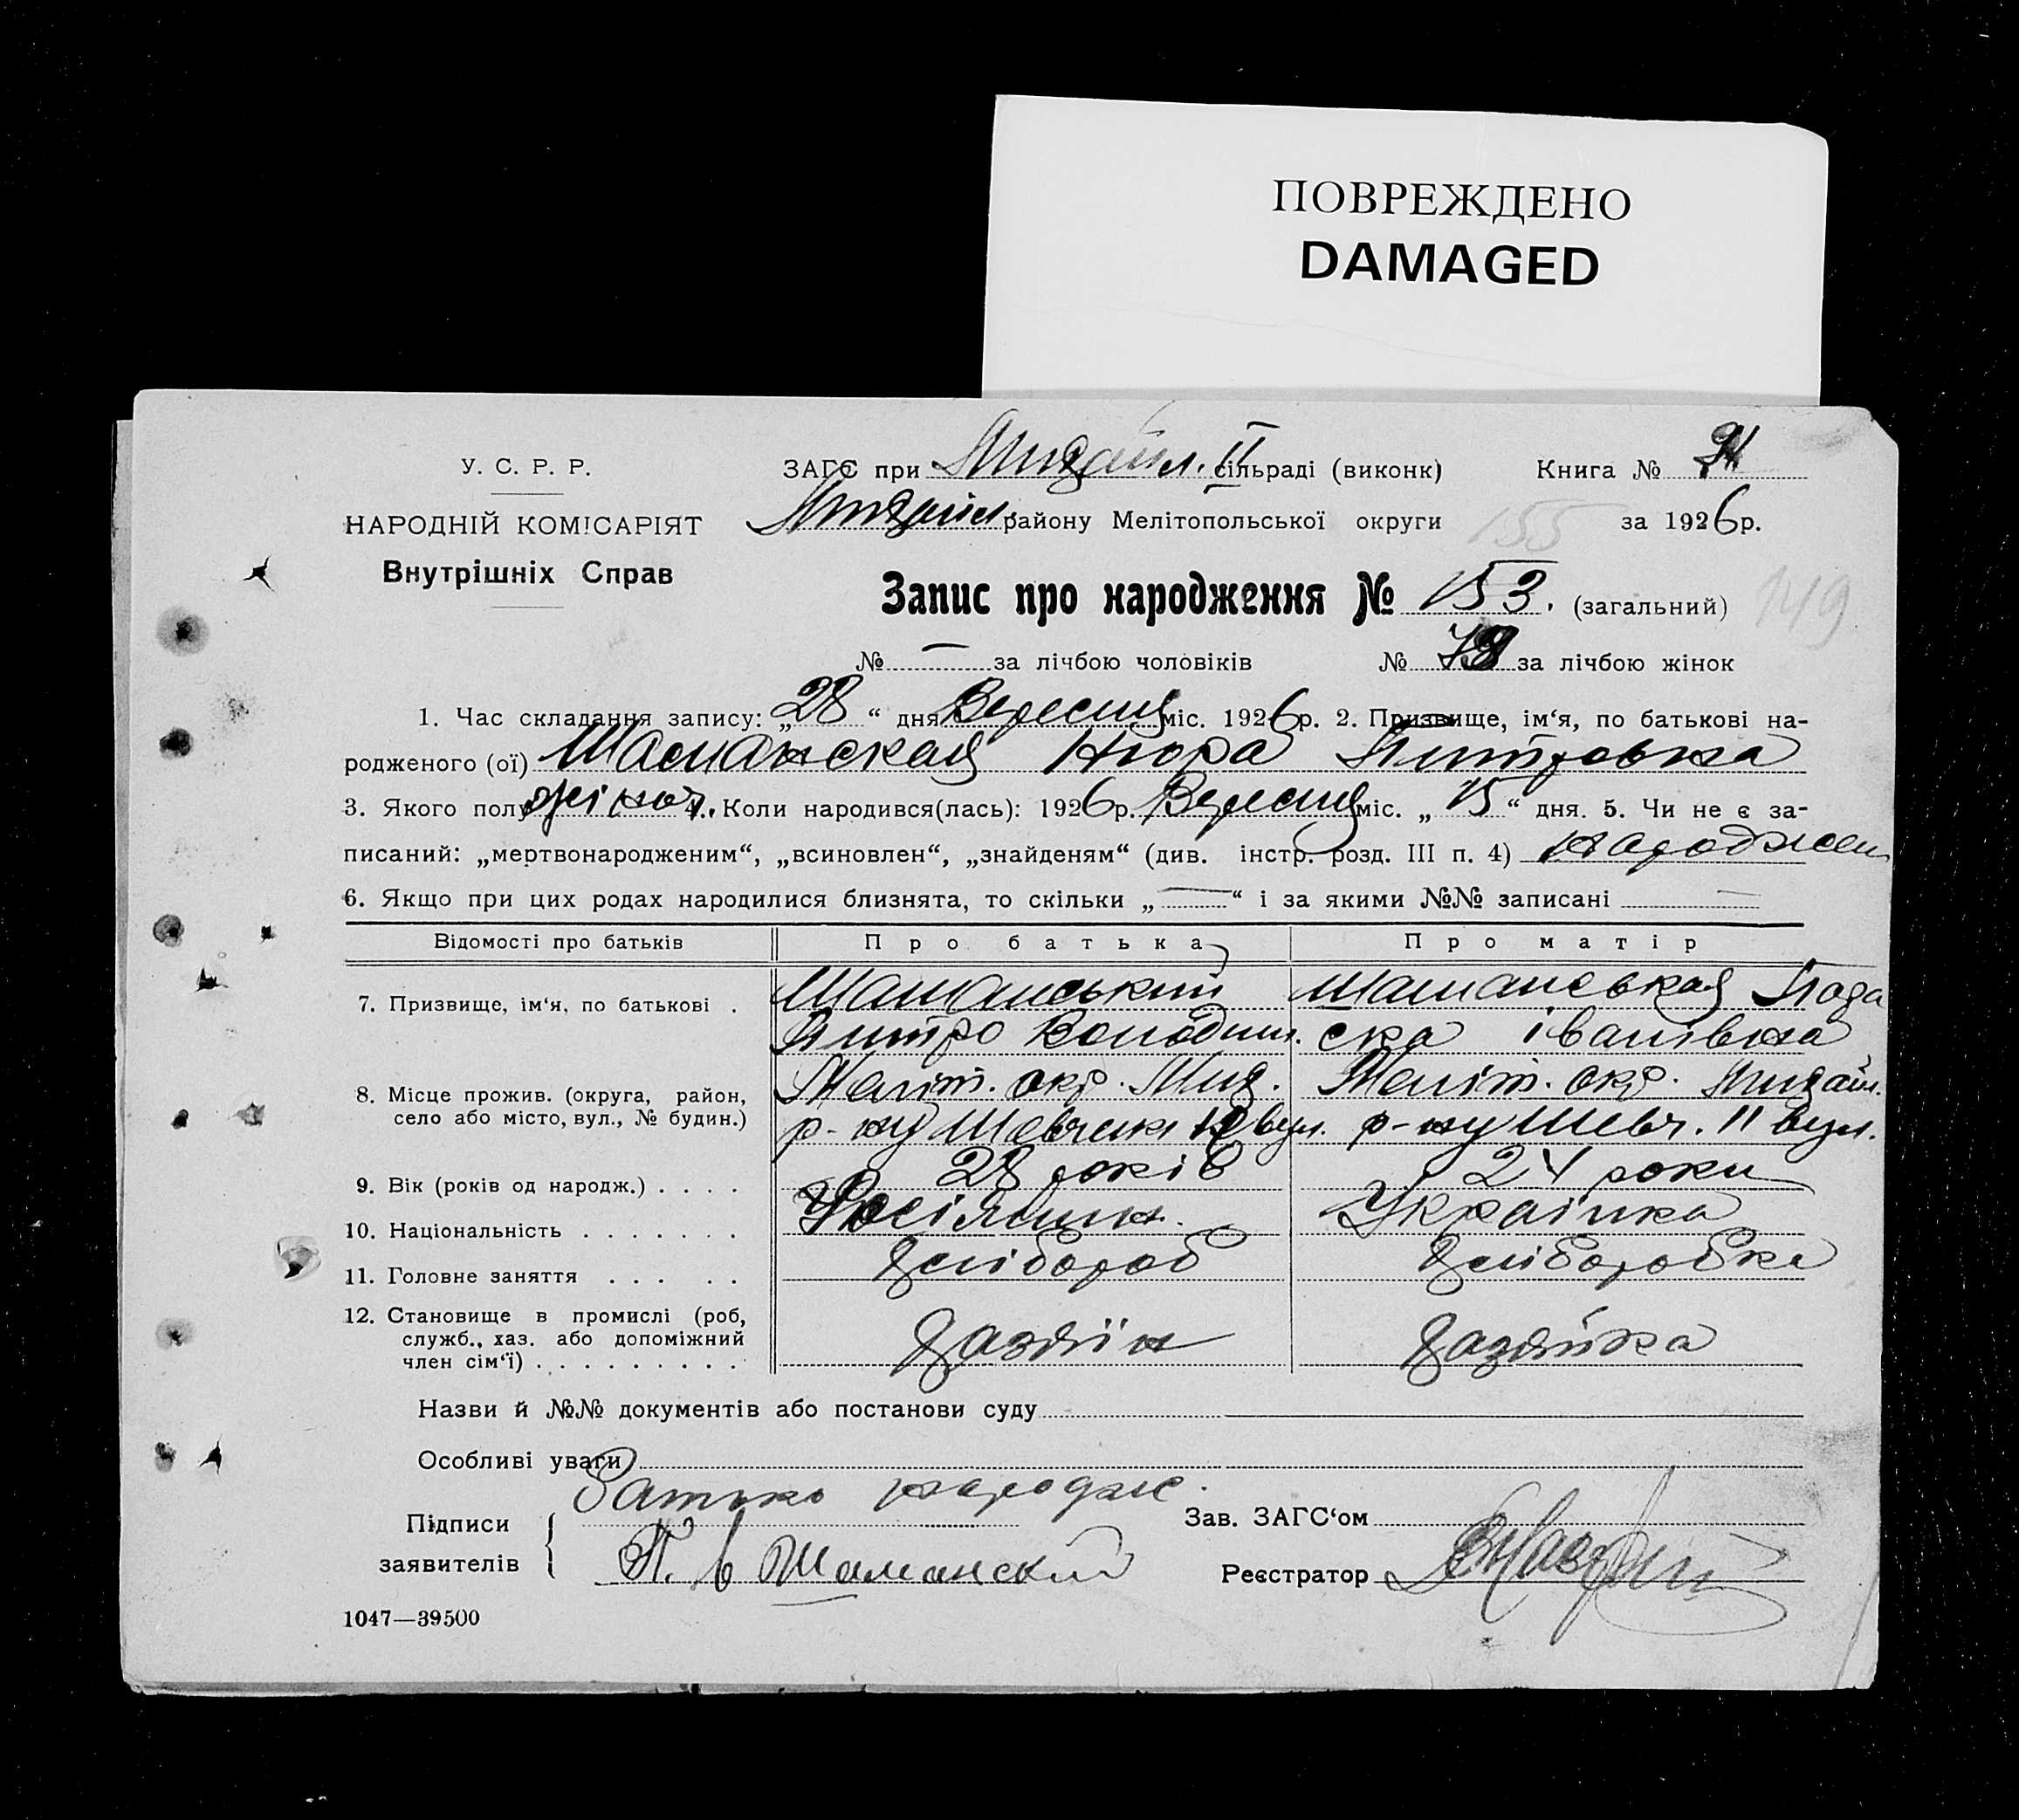 ПОВРЕЖДЕНО
DAMAGED
У. С. Р. Р.
НАРОДНІЙ КОМІСАРІЯТ
Внутрішніх Справ
ЗАГС при Михайл. ІІ сільраді (виконк) Книга №
Михайл. району Мелітопольської округи 155 за 1926 р.
Запис про народження № 153. (загальний) 149
№ — за лічбою чоловіків № 78 за лічбою жінок
1. Час складання запису: „28“ дня Вересня міс. 1926 р. 2. Призвище, ім‘я, по батькові на-
родженого (ої) Шаманская Нюра Питровна
3. Якого полу жіноч. 4. Коли народився(лась): 1926 р. Вересня міс. „15“ дня. 5. Чи не є за-
писаний: „мертвонародженим“, „всиновлен“, „знайденям“ (див. інстр. розд. III п. 4) народжен
6. Якщо при цих родах народилися близнята, то скільки „—“ і за якими №№ записані —
Відомості про батьків Про батька Про матір
7. Призвище, ім‘я, по батькові . Шаманський Шаманськая Пара
Питро Володим. ска Іванівна
8. Місце прожив. (округа, район, Меліт. окр. Мих. Меліт. окр. Михайл.
село або місто, вул., № будин.) р-ну Шевченк вул. р-ну Шевч. 11 вул.
9. Вік (років од народж.) . . . . 28 років 24 роки
10. Національність . . . . . . . Росіянин. Українка
11. Головне заняття . . . . . Хлібороб Хліборобка
12. Становище в промислі (роб,
служб., хаз. або допоміжний
член сім‘ї) . . . . . . . . . Хазяїн Хазяйка
Назви й №№ документів або постанови суду
Особливі уваги
Батько народж.
Підписи
заявителів П. В Шаманский
Зав. ЗАГС‘ом
Реєстратор
1047—39500